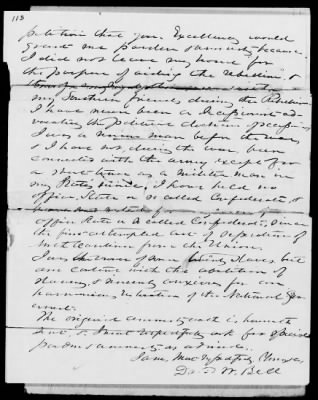 113
petition that your Excellency would
grant me pardon & amnesty because
I did not leave my home for
the purpose of aiding the rebellion, &
my Southern friends during the Rebellion
I have never been a Secessionist ad-
vocating the political doctrine of secession
I was a Union man before the war,
& I have not during the war been
connected with the army except for
a short time as a militia man in
my State, I have held no
office, State or so called Confederate, &
office State or so called Confederate, since
the first attempted act of separation of
from the Union.
I was the owner of some slaves but
am content with the abolition of
slavery, & sincerely anxious for an
harmonious restoration of the National Gov-
ernment.
The original amnesty oath is herewith
& I most respectfully ask for special
pardon & amnesty as
I am, Most respectfully Yours,
W. Bell